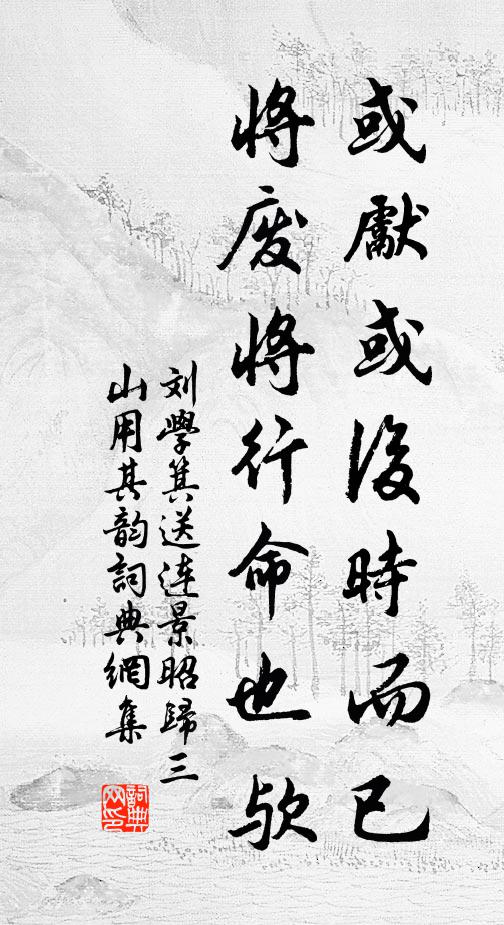 或獻或後時而已
將廢將行命也歟
刘學箕送连景昭歸三
山用其韵詞典網集